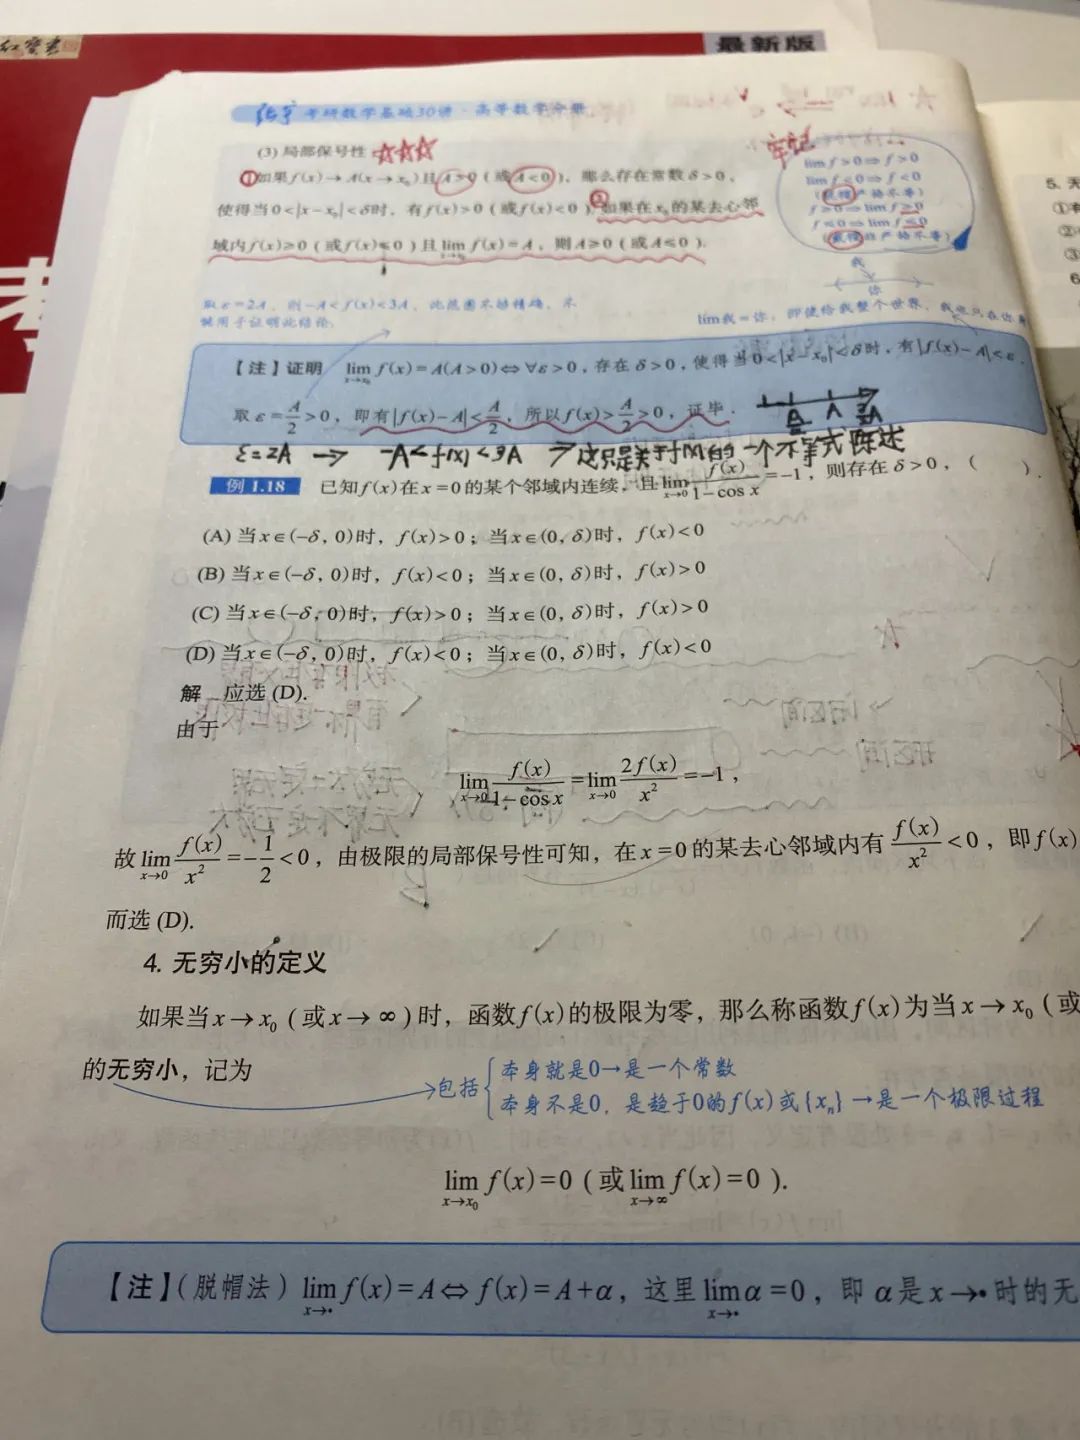 最新版
张宇 考研数学基础30讲·高等数学分册
(3) 局部保号性 ☆☆☆
牢记
①如果f(x)→A(x→x₀)且A>0(或A<0),那么存在常数δ>0,
使得当0<|x-x₀|<δ时,有f(x)>0(或f(x)<0).②如果在x₀的某去心邻
域内f(x)≥0(或f(x)≤0)且lim_{x→x₀} f(x)=A,则A≥0(或A≤0).
lim f>0⇒f>0
lim f<0⇒f<0
(脱帽严格不等)
f≥0⇒lim f≥0
f≤0⇒lim f≤0
(戴帽非严格不等)
我
你
lim我=你,即使给我整个世界,我也只在你身
取ε=2A,则-A<f(x)<3A,此范围不够精确,不
能用于证明此结论.
【注】证明 lim_{x→x₀} f(x)=A(A>0)⇔∀ε>0,存在δ>0,使得当0<|x-x₀|<δ时,有|f(x)-A|<ε.
取ε=A/2>0,即有|f(x)-A|<A/2,所以f(x)>A/2>0,证毕.
A/2 A 3/2A
ε=2A → -A<f(x)<3A → 这只是关于f(x)的一个不等式陈述
例1.18 已知f(x)在x=0的某个邻域内连续,且lim_{x→0} f(x)/(1-cos x)=-1,则存在δ>0,( ).
(A) 当x∈(-δ,0)时,f(x)>0;当x∈(0,δ)时,f(x)<0
(B) 当x∈(-δ,0)时,f(x)<0;当x∈(0,δ)时,f(x)>0
(C) 当x∈(-δ,0)时,f(x)>0;当x∈(0,δ)时,f(x)>0
(D) 当x∈(-δ,0)时,f(x)<0;当x∈(0,δ)时,f(x)<0
解 应选(D).
由于
lim_{x→0} f(x)/(1-cos x)=lim_{x→0} 2f(x)/x²=-1,
故lim_{x→0} f(x)/x²=-1/2<0,由极限的局部保号性可知,在x=0的某去心邻域内有f(x)/x²<0,即f(x)
而选(D).
4. 无穷小的定义
如果当x→x₀(或x→∞)时,函数f(x)的极限为零,那么称函数f(x)为当x→x₀(或
的无穷小,记为
包括{本身就是0→是一个常数
本身不是0,是趋于0的f(x)或{xₙ}→是一个极限过程
lim_{x→x₀} f(x)=0(或lim_{x→∞} f(x)=0).
【注】(脱帽法) lim_{x→•} f(x)=A⇔f(x)=A+α,这里lim_{x→•} α=0,即α是x→•时的无
5. 无
①有
②
③
6